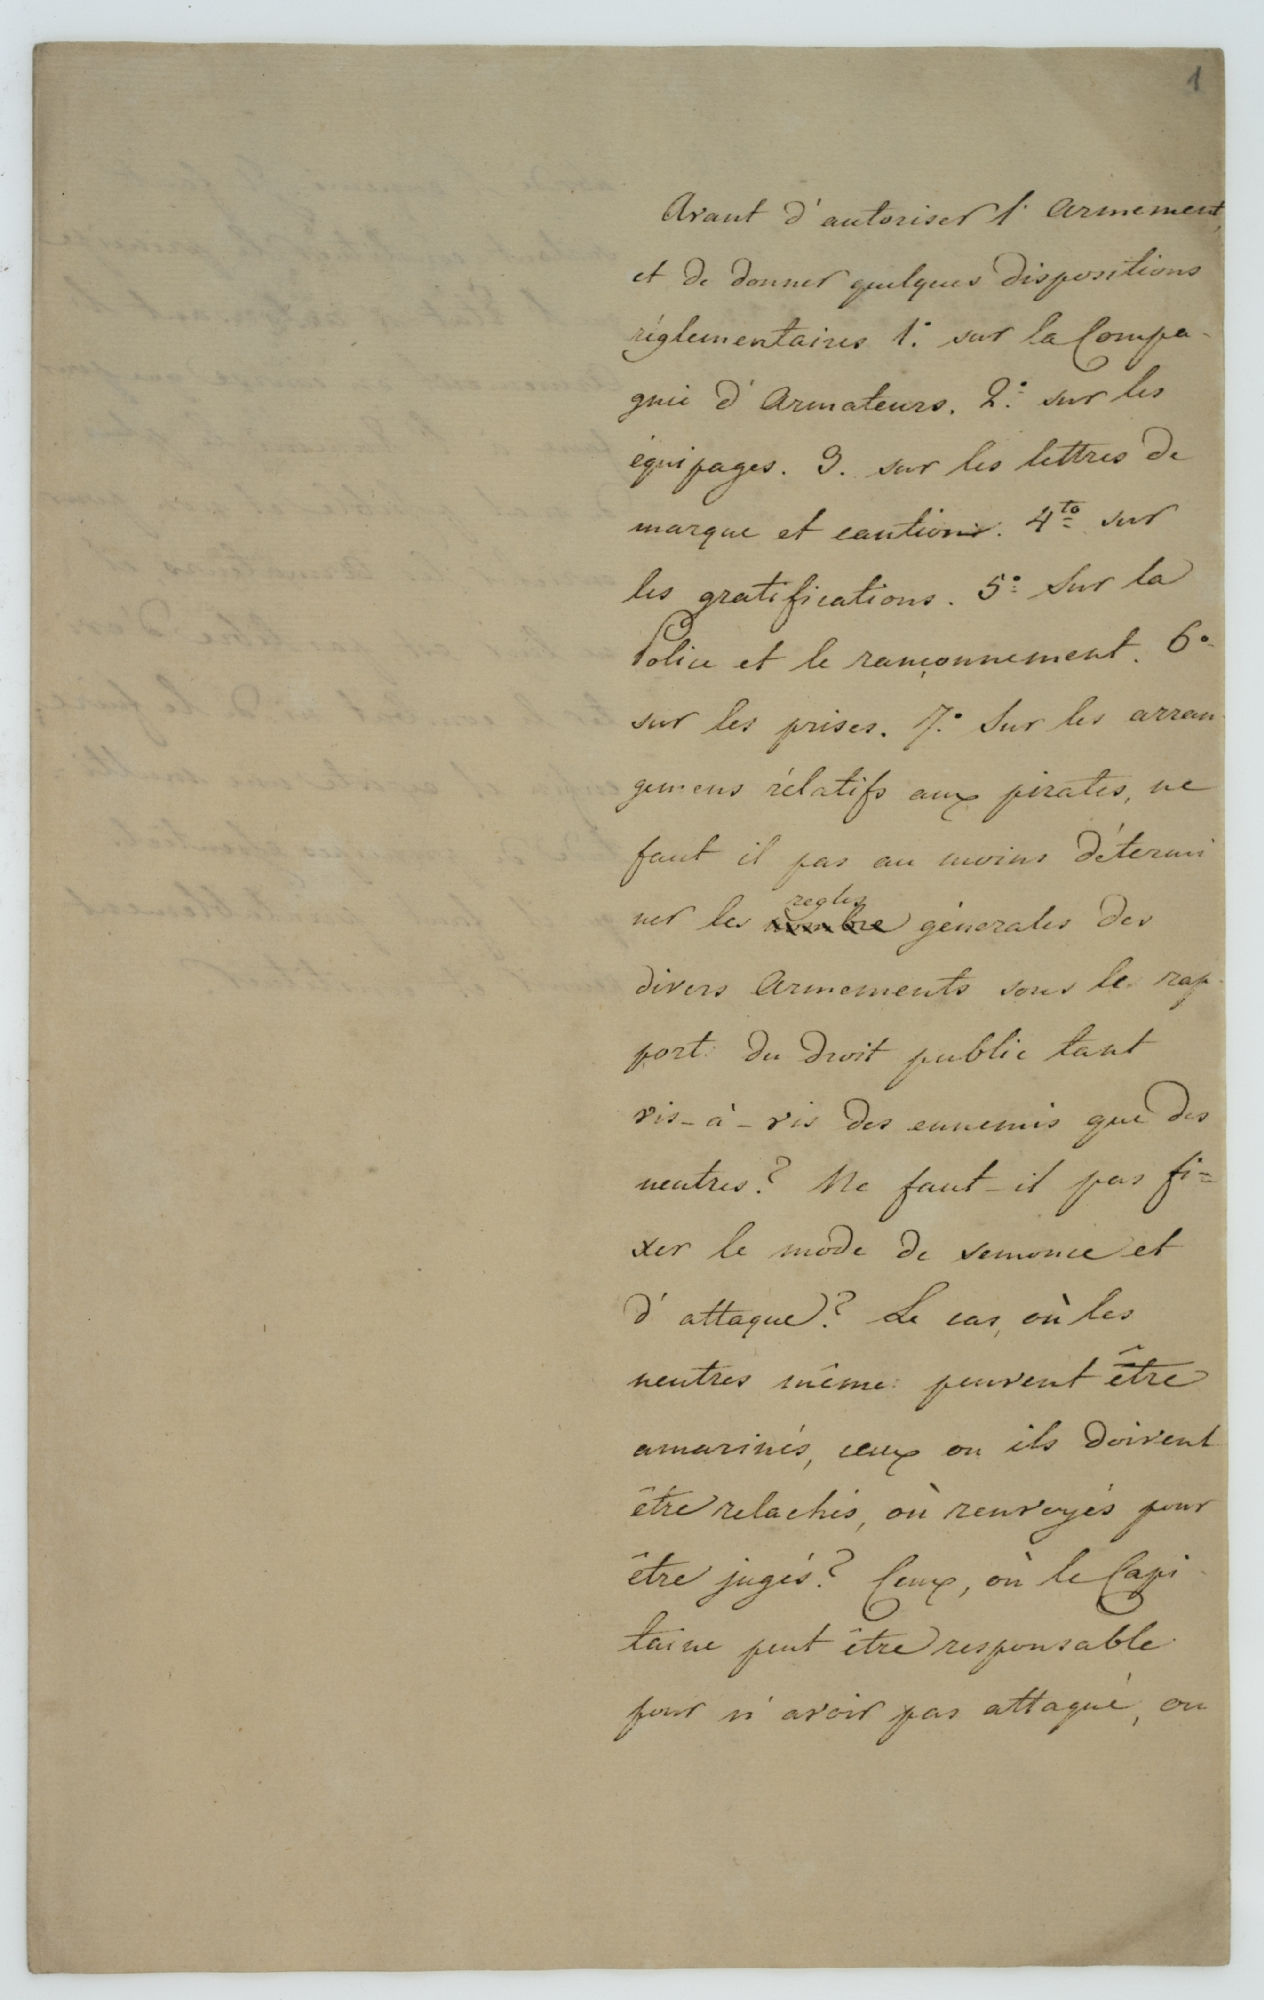 1
Avant d'autoriser l'Armement,
et de donner quelques dispositions
réglementaires 1.° sur la Compa-
gnie d'Armateurs. 2.° sur les
équipages. 3. sur les lettres de
marque et cautions. 4.to sur
les gratifications. 5.° Sur la
Police et le rançonnement. 6.°
sur les prises. 7.° Sur les arran-
gemens rélatifs aux pirates, ne
faut il pas au moins détermi
regles
ner les génerales des
divers Armements sous le rap-
port du droit public tant
vis-à-vis des ennemis que des
neutres? Ne faut-il pas fi=
xer le mode de semonce et
d'attaque? Le cas, où les
neutres même peuvent être
amarinés, ceux ou ils doivent
être relachés, où renvoyés pour
être jugés? Ceux, où le Capi-
taine peut être responsable
pour n'avoir pas attaqué, ou